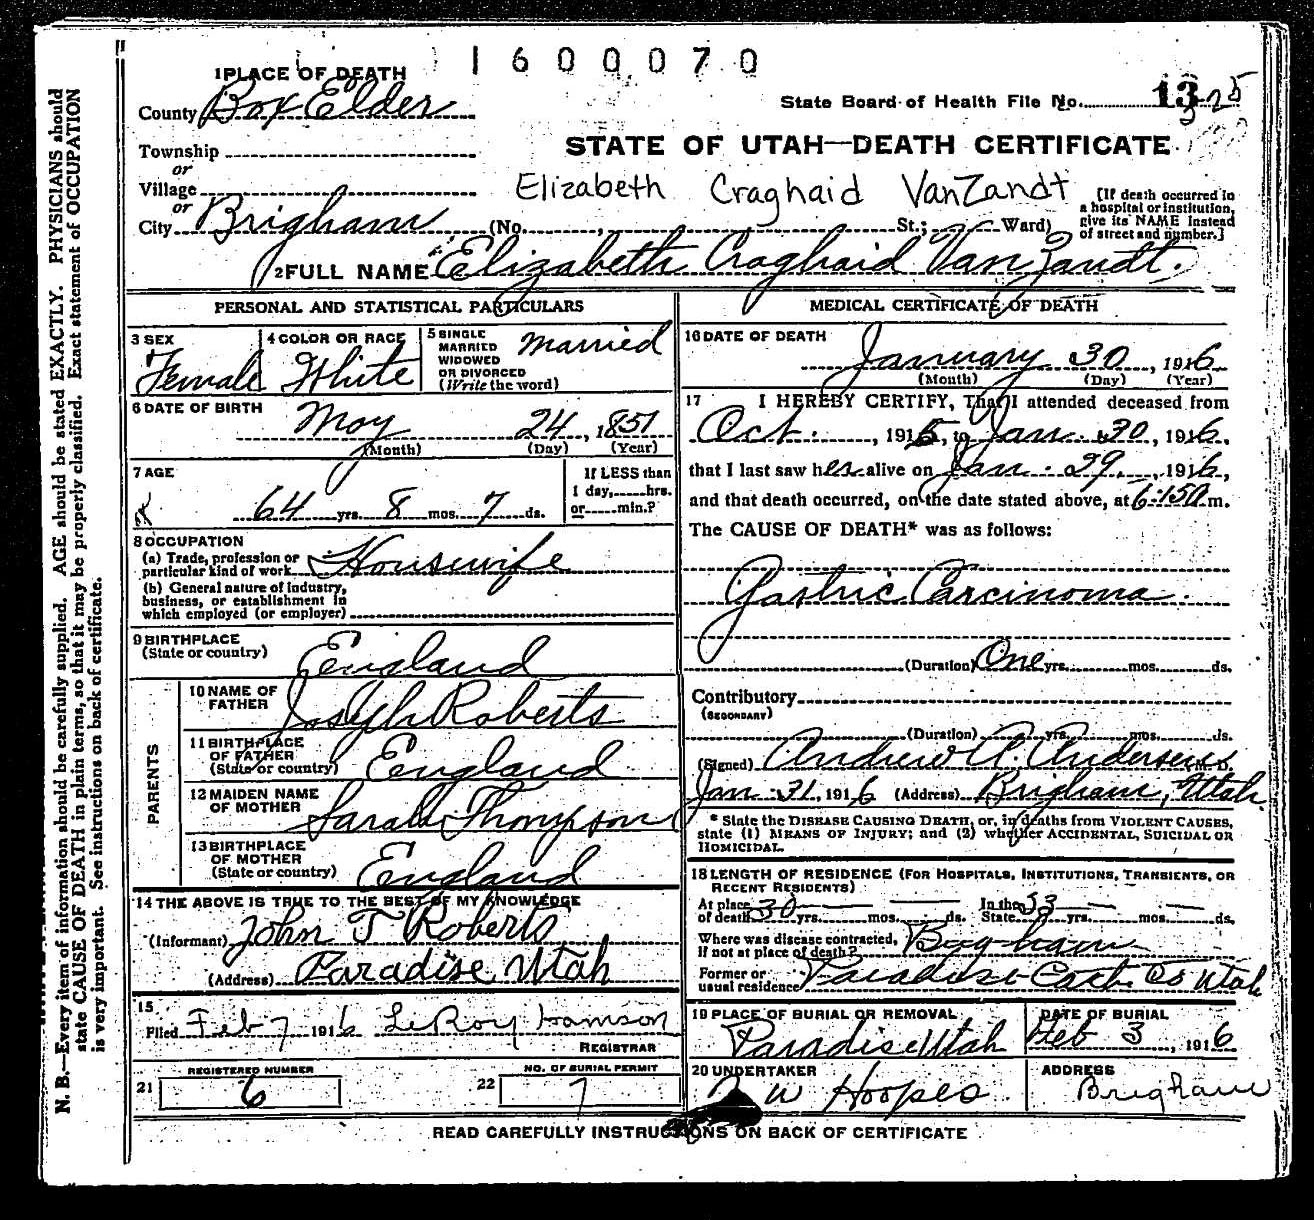 1600070
1 PLACE OF DEATH
County Box Elder
State Board of Health File No. 13
25
Township
or
Village
or
City Brigham
STATE OF UTAH—DEATH CERTIFICATE
Elizabeth Craghaid VanZandt
(No. , St.; Ward)
[If death occurred in
a hospital or institution,
give its NAME instead
of street and number.]
2 FULL NAME Elizabeth Craghaid VanZandt.
PERSONAL AND STATISTICAL PARTICULARS
3 SEX
Female
4 COLOR OR RACE
White
5 SINGLE
MARRIED
WIDOWED
OR DIVORCED
(Write the word)
Married
6 DATE OF BIRTH
May 24, 1851
(Month) (Day) (Year)
7 AGE
64 yrs. 8 mos. 7 ds.
If LESS than
1 day, hrs.
or min.?
8 OCCUPATION
(a) Trade, profession or
particular kind of work Housewife
(b) General nature of industry,
business, or establishment in
which employed (or employer)
9 BIRTHPLACE
(State or country) England
PARENTS
10 NAME OF
FATHER Joseph Roberts
11 BIRTHPLACE
OF FATHER
(State or country) England
12 MAIDEN NAME
OF MOTHER Sarah Thompson
13 BIRTHPLACE
OF MOTHER
(State or country) England
14 THE ABOVE IS TRUE TO THE BEST OF MY KNOWLEDGE
(Informant) John T Roberts
(Address) Paradise Utah
15
Filed Feb 7 1916 LeRoy
REGISTRAR
21 REGISTERED NUMBER
6
22 NO. OF BURIAL PERMIT
7
MEDICAL CERTIFICATE OF DEATH
16 DATE OF DEATH
January 30, 1916
(Month) (Day) (Year)
17 I HEREBY CERTIFY, That I attended deceased from
Oct. , 1915, to Jan. 30, 1916,
that I last saw her alive on Jan. 29, 1916,
and that death occurred, on the date stated above, at 6:15 m.
The CAUSE OF DEATH* was as follows:
Gastric Carcinoma.
(Duration) One yrs. mos. ds.
Contributory
(SECONDARY)
(Duration) yrs. mos. ds.
(Signed) Andrew P. Andersen M. D.
Jan 31, 1916 (Address) Brigham, Utah.
* State the DISEASE CAUSING DEATH, or, in deaths from VIOLENT CAUSES,
state (1) MEANS OF INJURY; and (2) whether ACCIDENTAL, SUICIDAL OR
HOMICIDAL.
18 LENGTH OF RESIDENCE (FOR HOSPITALS, INSTITUTIONS, TRANSIENTS, OR
RECENT RESIDENTS)
At place
of death 30 yrs. mos. ds. In the
State 33 yrs. mos. ds.
Where was disease contracted,
if not at place of death? Brigham
Former or
usual residence Paradise Cache Co Utah
19 PLACE OF BURIAL OR REMOVAL
Paradise Utah
DATE OF BURIAL
Feb 3, 1916
20 UNDERTAKER
W Hoopes
ADDRESS
Brigham
READ CAREFULLY INSTRUCTIONS ON BACK OF CERTIFICATE
N. B.—Every item of information should be carefully supplied. AGE should be stated EXACTLY. PHYSICIANS should
state CAUSE OF DEATH in plain terms, so that it may be properly classified. Exact statement of OCCUPATION
is very important. See instructions on back of certificate.